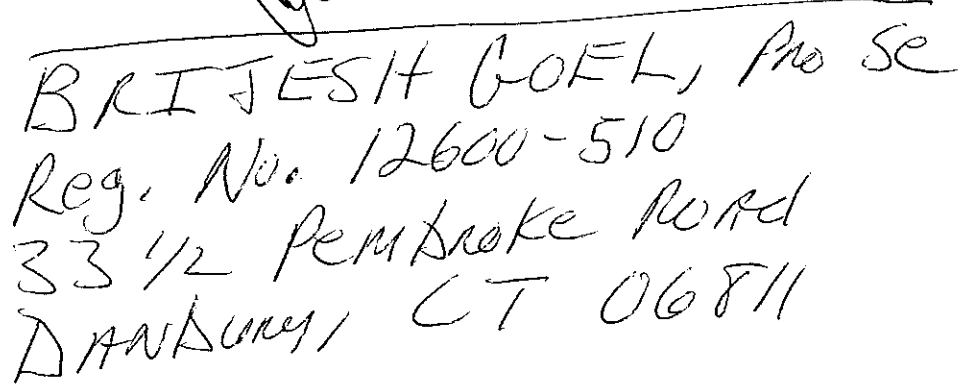 BRIJESH GOEL, Pro Se
Reg. No. 12600-510
33 1/2 Pembroke Road
DANBURY, CT 06811